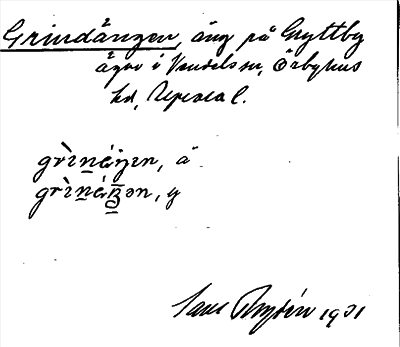 Grindängen, äng på Gryttby
ägor i Vendels sn, Örbyhus
hd, Uppsala l.
grìnéŋen, ä
grìnéŋən, y
1931